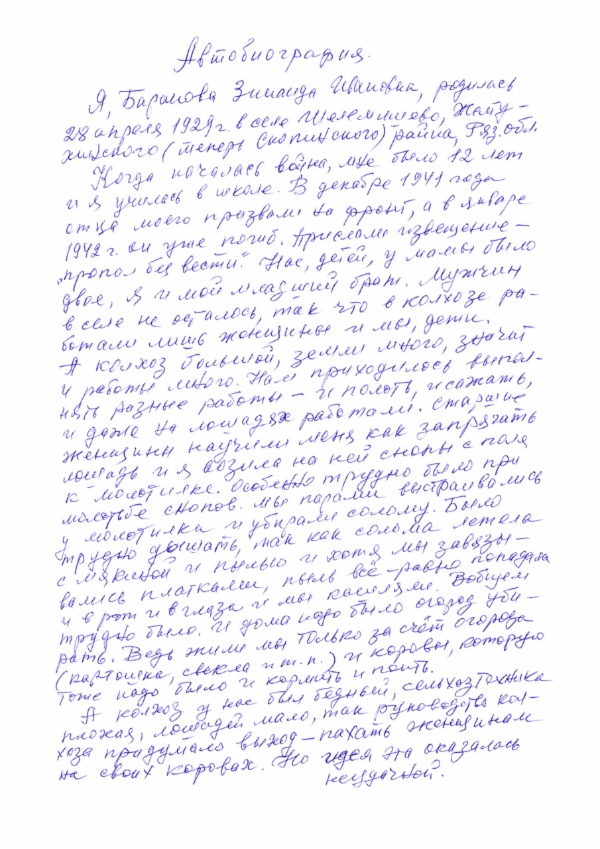 Автобиография.
Я, Баранова Зинаида Ивановна, родилась
28 апреля 1929 г. в селе Шелемишево, Желту-
хинского (теперь Скопинского) района, Ряз. обл.
Когда началась война, мне было 12 лет
и я училась в школе. В декабре 1941 года
отца моего призвали на фронт, а в январе
1942 г. он уже погиб. Прислали извещение –
„пропал без вести". Нас, детей, у мамы было
двое, я и мой младший брат. Мужчин
в селе не осталось, так что в колхозе ра-
ботали лишь женщины и мы, дети.
А колхоз большой, земли много, значит
и работы много. Нам приходилось выпол-
нять разные работы – и полоть, и сажать,
и даже на лошадях работали. Старшие
женщины научили меня как запрягать
лошадь и я возила на ней снопы с поля
к молотилке. Особенно трудно было при
молотьбе снопов. Мы парами выстраивались
у молотилки и убирали солому. Было
трудно дышать, так как солома летела
с мякиной и пылью и хотя мы завязы-
вались платками, пыль всё-равно попадала
и в рот и в глаза и мы кашляли. Вобщем
трудно было. И дома надо было огород уби-
рать. Ведь жили мы только за счёт огорода
(картошка, свекла и т.п.) и коровы, которую
тоже надо было и кормить и поить.
А колхоз у нас был бедный, сельхозтехника
плохая, лошадей мало, так руководство кол-
хоза придумало выход – пахать женщинам
на своих коровах. Но идея эта оказалась
неудачной.